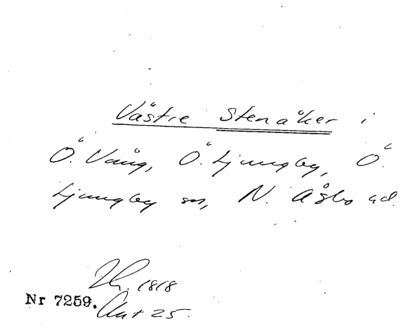 Västre Stenåker i
Ö. Vång, Ö. Ljungby, Ö.
Ljungby sn, N. Åsbo hd.
1818
Nr 7259. Akt 25.